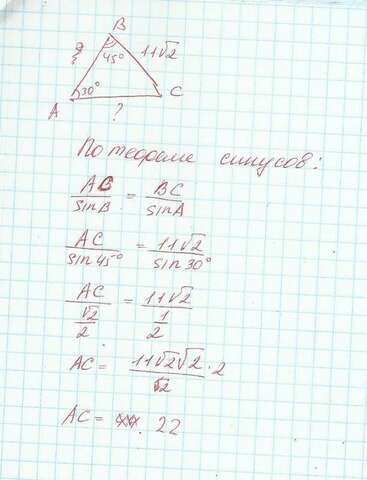 B
45° 11√2
A 30° C
?
По теореме синусов:
AC/sinB = BC/sinA
AC/sin45° = 11√2/sin30°
AC/(√2/2) = 11√2/(1/2)
AC = 11√2√2/2 · 2
AC = 22